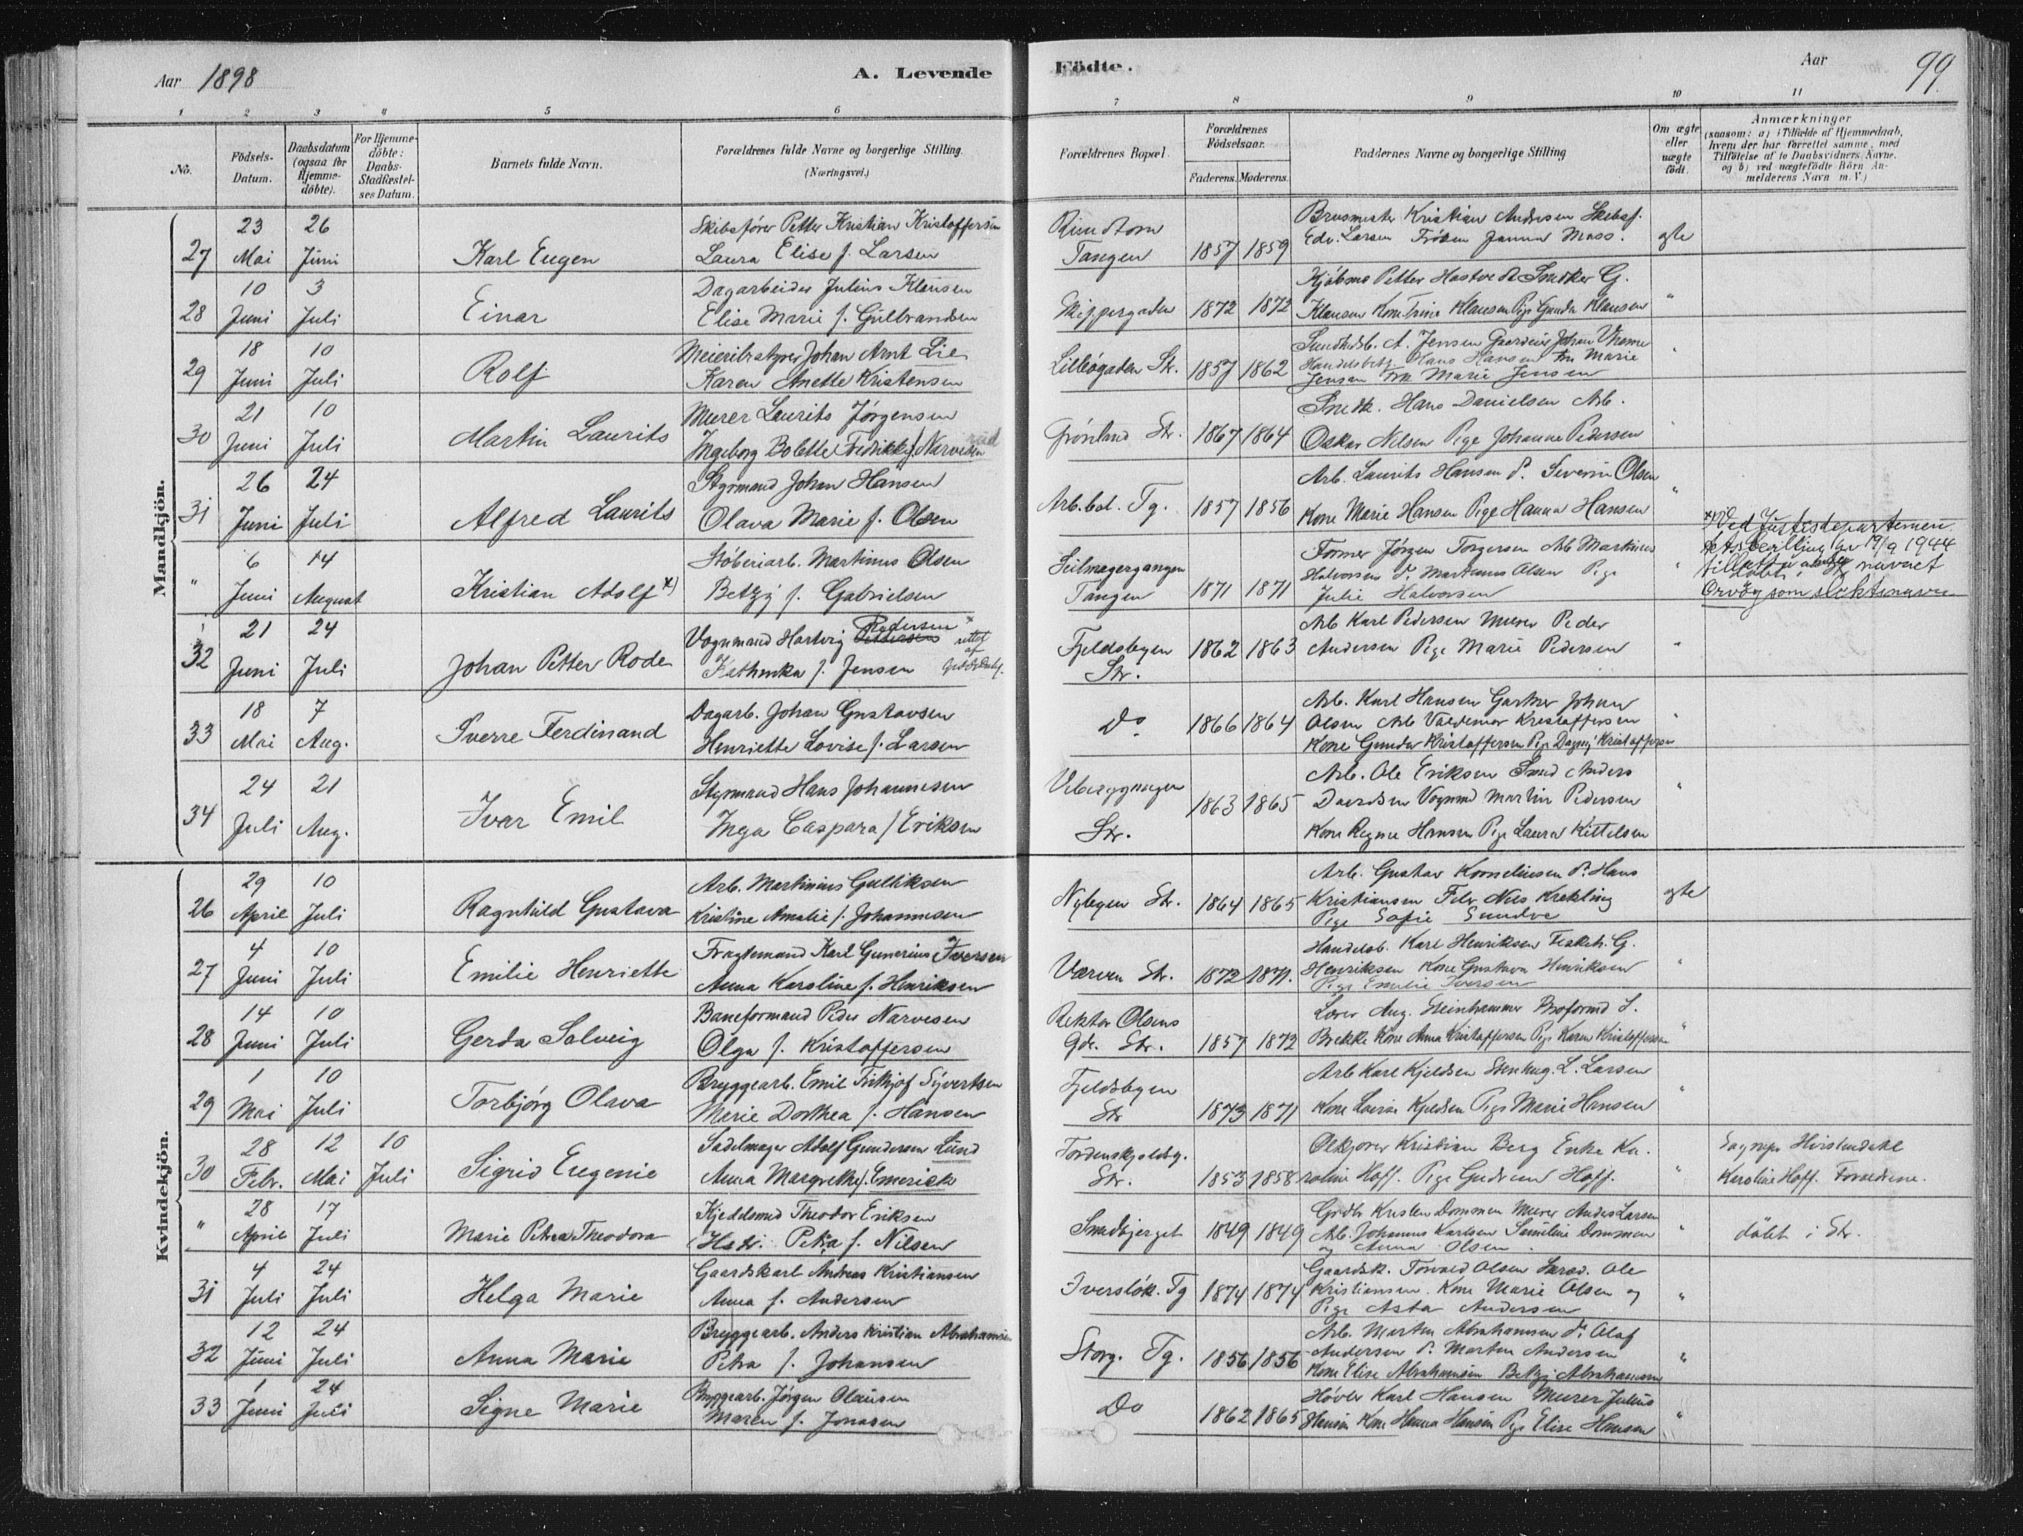 Aar 1898
A. Levende
Födte.
Aar
99.
1 2 3 4 5 6 7 8 9 10 11
No.
Födsels-
Datum.
Daabsdatum
(ogsaa for
Hjemme-
döbte).
For Hjemme-
döbte:
Daabs-
Stadfæstel-
ses Datum.
Barnets fulde Navn.
Forældrenes fulde Navne og borgerlige Stilling.
(Næringsvei.)
Forældrenes Bopæl.
Forældrenes
Födselsaar.
Faderens. Moderens.
Faddernes Navne og borgerlige Stilling
Om ægte
eller
uægte
födt.
Anmærkninger
(saasom: a) i Tilfælde af Hjemmedaab,
hvem der har forrettet samme, med
Tilföielse af to Daabsvidners Navne.
og b) ved uægtefödte Börn An-
melderens Navn m. V.)
Mandkjön.
23 26 Skibsfører Petter Kristian Kristoffersen
27 Mai Juni Karl Eugen Laura Elise f. Larsen
Tangen 1857 1859 Edv. Larsen Jomfru Moss. ægte
10 3 Dagarbeider Julius Klausen
28 Juni Juli Einar Elise Marie f. Gulbrandsen
Skippergaden 1872 1872 Klausen Kone Trine Klausen Pige Gunda Klausen "
18 10 Meieribestyrer Johan Arnt Lie
29 Juni Juli Rolf Karen Anette Kristensen
Lilleögaden Str. 1857 1862 Hans Hansen Fru Marie
Jensen Frk Marie Jensen "
21 10 Murer Laurits Jørgensen
30 Juni Juli Martin Laurits Ingeborg Bolette Fredrikke f. Narvesen
Snedk. Hans Danielsen Arb.
Grönland Str. 1867 1864 Oskar Nilsen Pige Johanne Pedersen "
26 24 Styrmand Johan Hansen
31 Juni Juli Alfred Laurits Olava Marie f. Olsen
Arb. Laurits Hansen do. Severin Olsen
Arb.bol. Tg. 1857 1856 Kone Marie Hansen Pige Hanna Hansen "
6 14 Støberiarb. Martinus Olsen
" Juni August Kristian Adolf x) Betzy f. Gabrielsen
Former Jørgen Torgersen Arb Martinus
Seilmagergangen
Tangen 1871 1871 Halvorsen do. Martinus Olsen Pige
Julie Halvorsen "
x) Ved Justisdepartemen-
tets bevilling av 19/9 1944
navnet
Orvåg som slektsnavn
21 24 Vognmand Hartvig Pedersen x rettet
32 Juni Juli Johan Petter Rode Kathinka f. Jensen
Arb Karl Pedersen Murer Peder
Fjeldsbyen
Str. 1862 1863 Andersen Pige Marie Pedersen "
18 7 Dagarb. Johan Gustavsen
33 Mai Aug. Sverre Ferdinand Henriette Lovise f. Larsen
Arb. Karl Hansen Gartner Johan
Do 1866 1864 Olsen Arb Valdemar Kristoffersen
Kone Gunda Kristoffersen Pige Dagny Kristoffersen "
24 21 Styrmand Hans Johannesen
34 Juli Aug. Ivar Emil Inga Caspara f. Eriksen
Arb. Ole Eriksen Smed Anders
Str. 1863 1865 Davidsen Vognmd Martin Pedersen
Kone Regine Hansen Pige Laura Kittelsen "
Kvindekjön.
29 10 Arb. Martinius Gulliksen
26 April Juli Ragnhild Gustava Kristine Amalie f. Johannesen
Arb. Gustav Korneliussen do. Hans
Nybyen Str. 1864 1865 Kristiansen Filer Nils Krekling
Pige Sofie Sundve ægte
4 10 Fragtemand Karl Gunerius Iversen
27 Juni Juli Emilie Henriette Anna Karoline f. Henriksen
Handelsb. Karl Henriksen Fiskeh. G.
Værven Str. 1872 1871. Henriksen Kone Gustava Henriksen
Pige Emilie Iversen "
14 10 Baneformand Peder Narvesen
28 Juni Juli Gerda Solveig Olga f. Kristoffersen
Rektor Olsens
Gde. Str. 1857 1872
Lærer Aug. Steinhammer Broformd S.
Brekke Kone Anna Kristoffersen Pige Karen Kristoffersen "
1 10 Bryggearb. Emil Fritjof Syvertsen
29 Mai Juli Torbjørg Olava Marie Dorthea f. Hansen
Fjeldsbyen
Str 1873 1871
Arb Karl Kjeldsen Stenhug. L. Larsen
Kone Lovise Kjeldsen Pige Marie Hansen "
28 12 10 Sadelmager Adolf Gundersen Lund
30 Febr. Mai Juli Sigrid Eugenie Anna Margrethe f. Emerick
Tordenskjoldsg.
Str. 1853 1858
Olkjører Kristian Berg Enke Ka-
roline Hoff. Pige Gudrun Hoff. "
Karoline Hoff. Forældrene.
28 17 Kjedelsmed Theodor Eriksen
" April Juli Marie Petrea Theodora Petra f. Nilsen
Smedbjerget 1849 1849
Grdbr Kristen Dommen Murer Anders Larsen
Arb. Johannes Karlsen Semeline Dommen
og Anna Olsen. " döbt i Str.
4 24 Gaardskarl Andreas Kristiansen
31 Juli Juli Helga Marie Anna f. Andersen
Iverslök. Tg 1874 1874
Gaardsk. Torvald Olsen Ole
Kristiansen. Kone Marie Olsen og
Pige Asta Andersen "
12 24 Bryggearb. Anders Kristian Abrahamsen
32 Juni Juli Anna Marie Petra f. Johansen
Storg. Tg. 1856 1856
Arb. Martin Abrahamsen do. Olaf
Andersen do. Morten Andersen
Kone Elise Abrahamsen Betzy Abrahamsen "
1 24 Bryggearb. Jørgen Olausen
33 Juni Juli Signe Marie Maren f. Jonasen
Do 1862 1865
Høvler Karl Hansen Murer Julius
Hansen Kone Hanna Hansen Pige Elise Hansen "